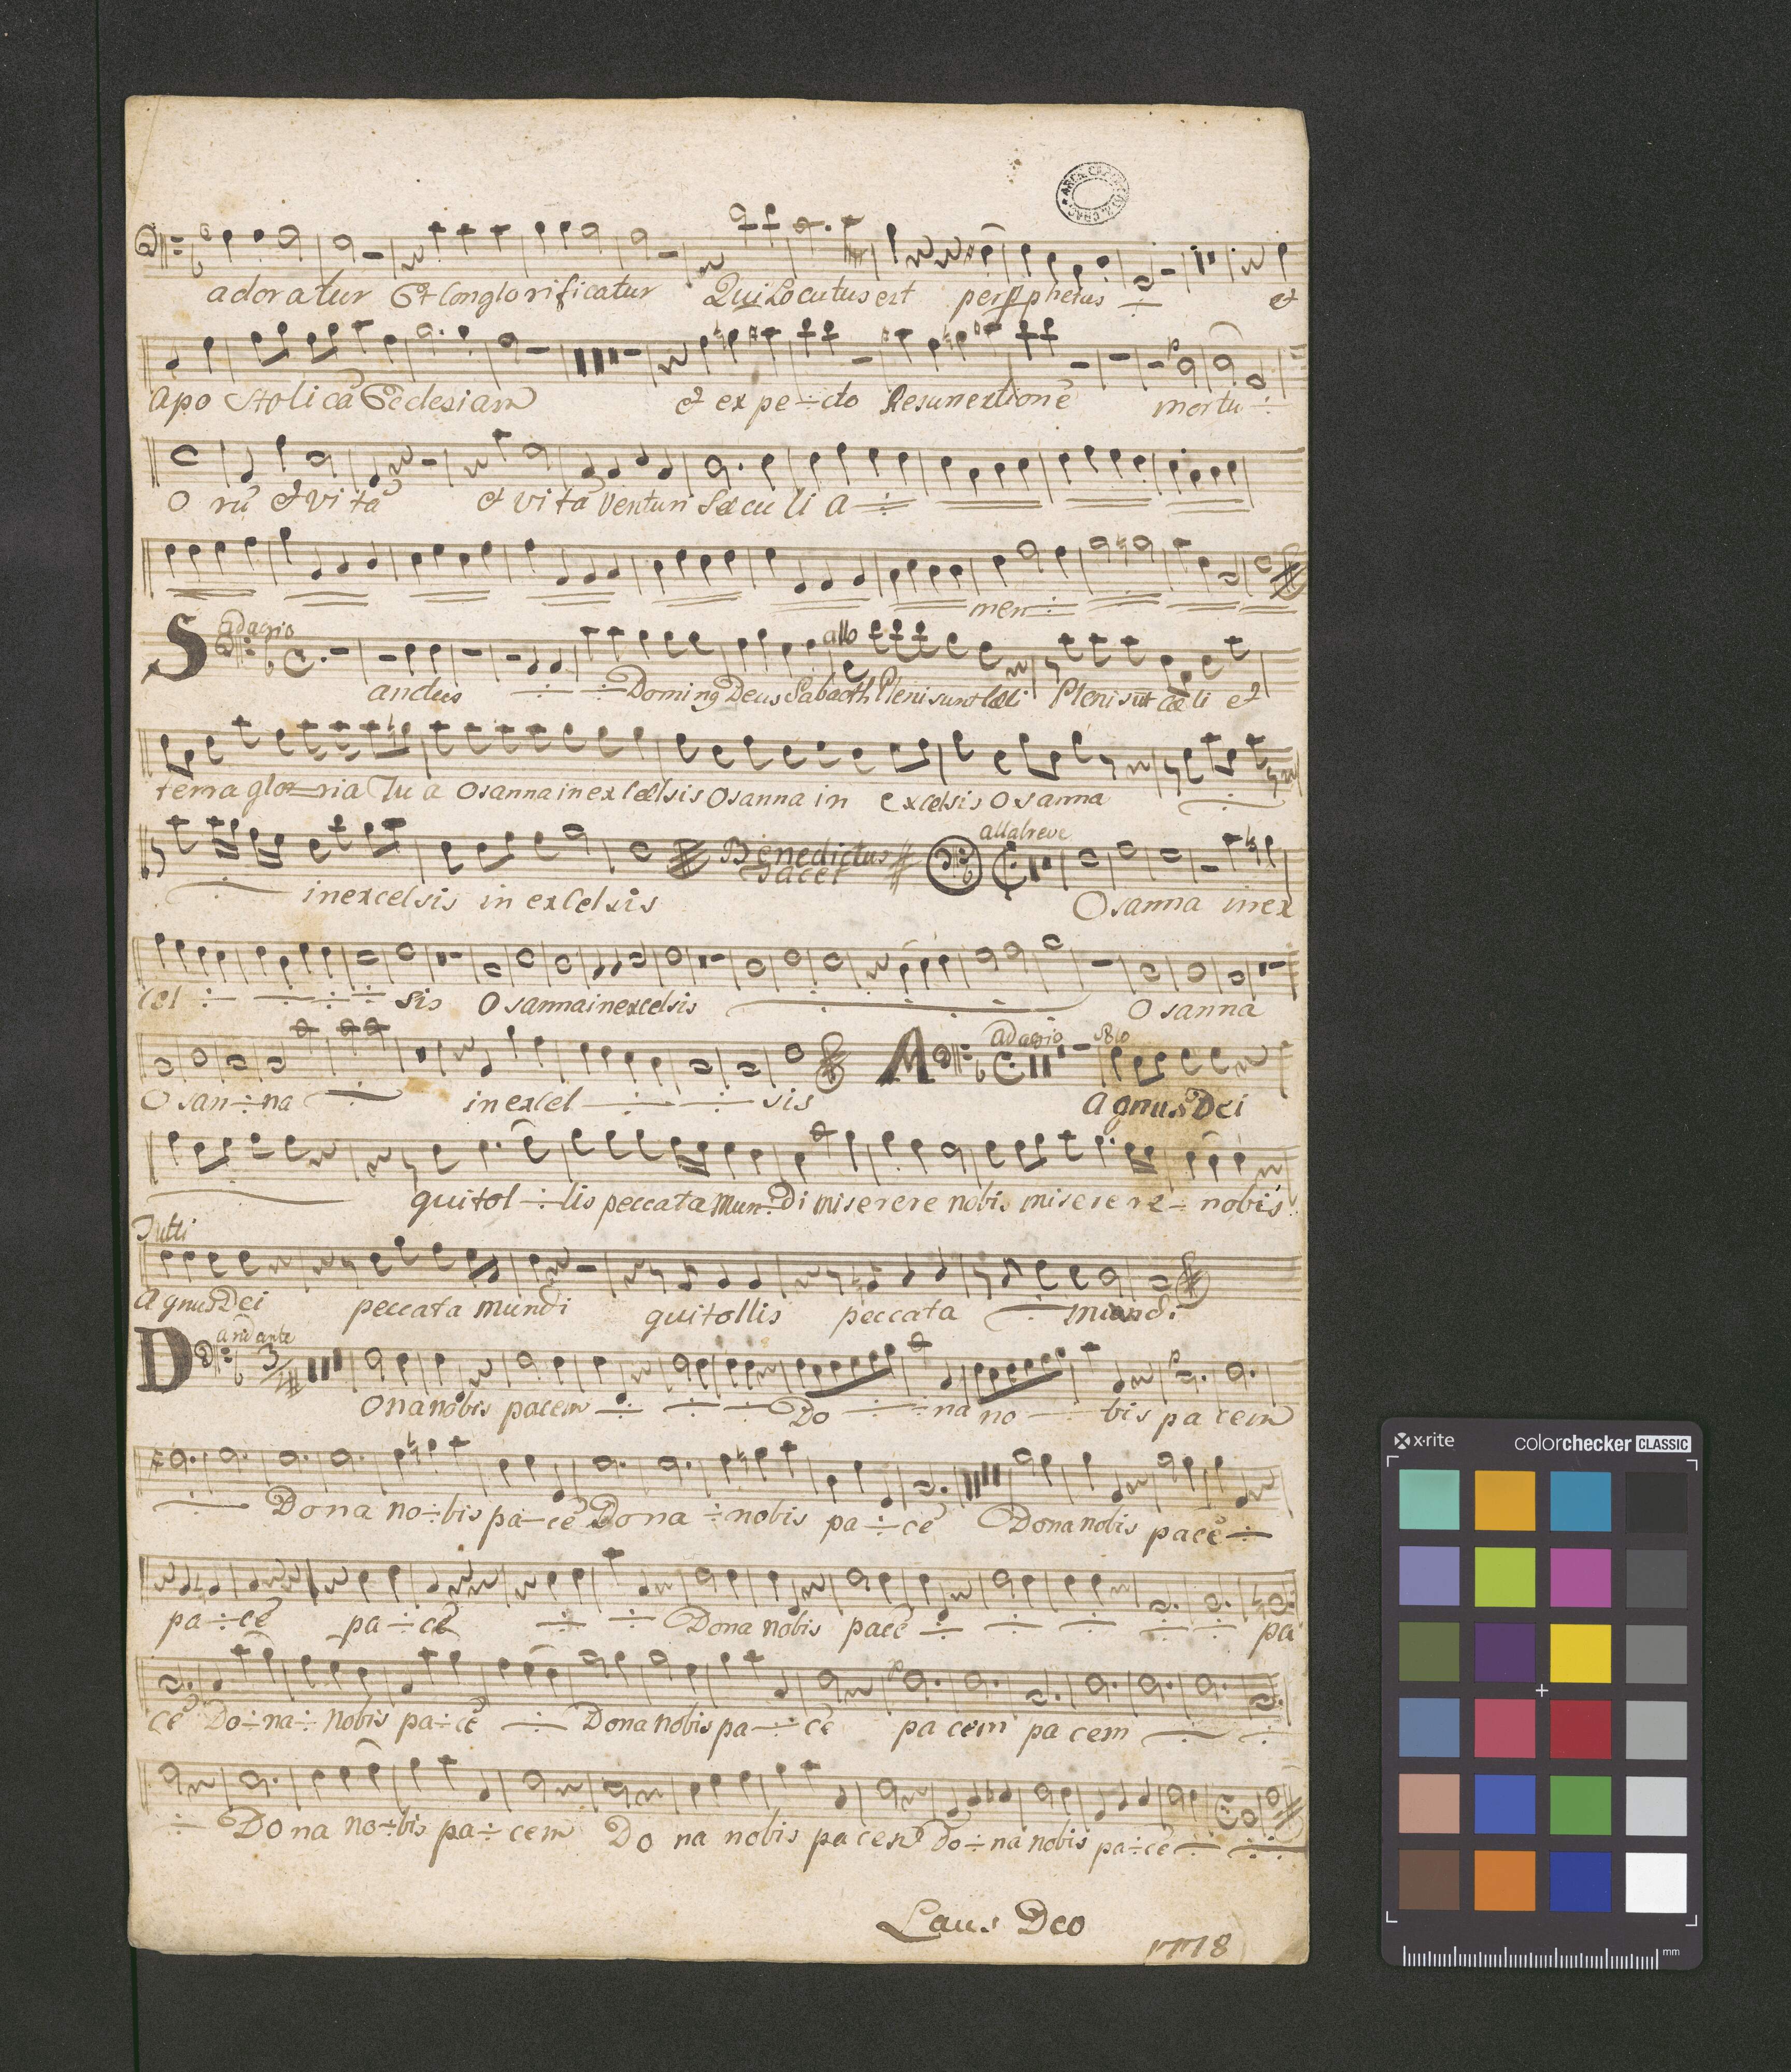 adoratur Et Conglorificatur Qui Locutus est per pphetas et
Apo stolicā Ecclesiam et expe-cto Resurrextionē mortu
O rū et vi tā et vi tā Venturi Sæcu li a
men
adagio
allo
Sanctus Doming Deus Sabaoth Pleni sunt Cæli Pleni sūt cæ li et
terra glo-ria Tu a Osanna in ex Cælsis Osanna in excelsis Osanna
Benedictus
Tacet
allabreve
in excelsis in exCelsis Osanna in ex
cel sis Osanna in excelsis O sanna
adagio
O san na in excel sis Agnus Dei
qui tol-lis peccata Mun-di miserere nobis misere re-nobis
Tutti
Agnus Dei peccata mundi qui tollis peccata mundi
andante
3
Dona nobis pacem Do na no bis pa cem
Dona no-bis pa-cē Dona nobis pa-cē Dona nobis pacē
pa-cē pa-cē Dona nobis pacē pa
cē Do-na-nobis pa-cē Dona nobis pa-cē pa cem pa cem
Do na no-bis pa-cem Do na nobis pa cem Do-na nobis pa-cē
Laus Deo
1778
x·rite colorchecker CLASSIC
mm